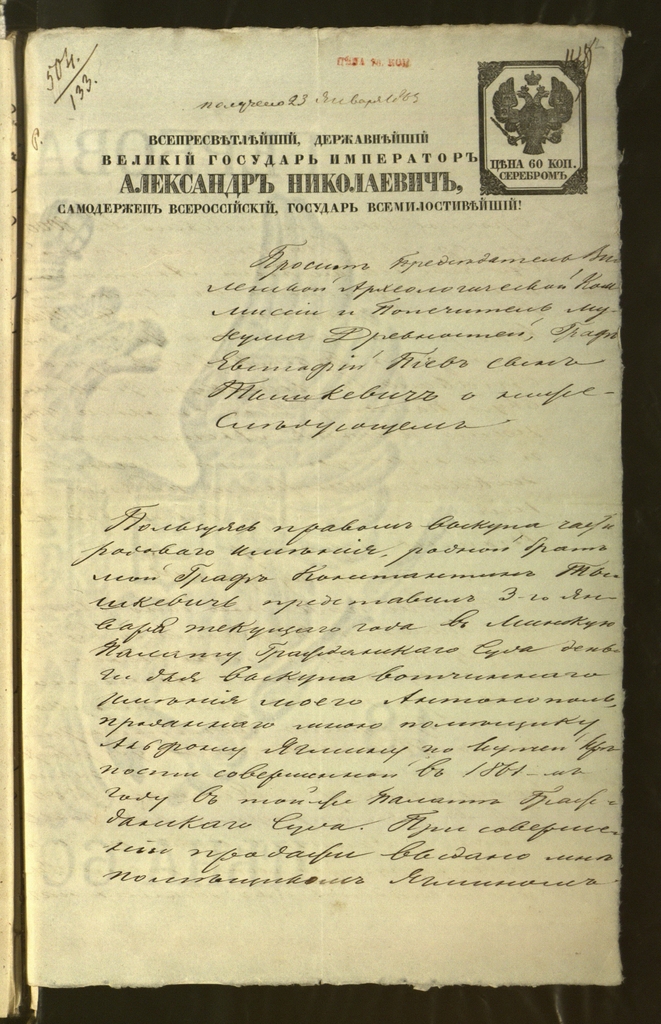 504.
133.
ЦѢНА 60 КОП.
СЕРЕБРОМЪ
получено 23 Января 1863
ВСЕПРЕСВѢТЛѢЙШІЙ, ДЕРЖАВНѢЙШІЙ
ВЕЛИКІЙ ГОСУДАРЬ ИМПЕРАТОРЪ
АЛЕКСАНДРЪ НИКОЛАЕВИЧЪ,
САМОДЕРЖЕЦЪ ВСЕРОССІЙСКІЙ, ГОСУДАРЬ ВСЕМИЛОСТИВѢЙШІЙ!
Проситъ Предсѣдатель Ви
ленской Археологической Ком
миссіи и Попечитель Му-
зеума Древностей, Графъ
Евстафій Піевъ сынъ
Тышкевичъ о ниже-
слѣдующемъ
Пользуясь правомъ выкупа части
родоваго имѣнія, родной братъ
мой Графъ Константинъ Ты-
шкевичъ представилъ 3-го Ян-
варя текущаго года въ Минскую
Палату Гражданскаго Суда день-
ги для выкупа вотчиннаго
имѣнія моего Антонополь,
проданнаго мною помѣщику
Альфонсу Ягмину по купчей крѣ
пости совершенной въ 1861-мъ
году въ той же Палатѣ Граж-
данскаго Суда. При соверше-
ніи продажи выдано мнѣ
помѣщикомъ Ягминомъ